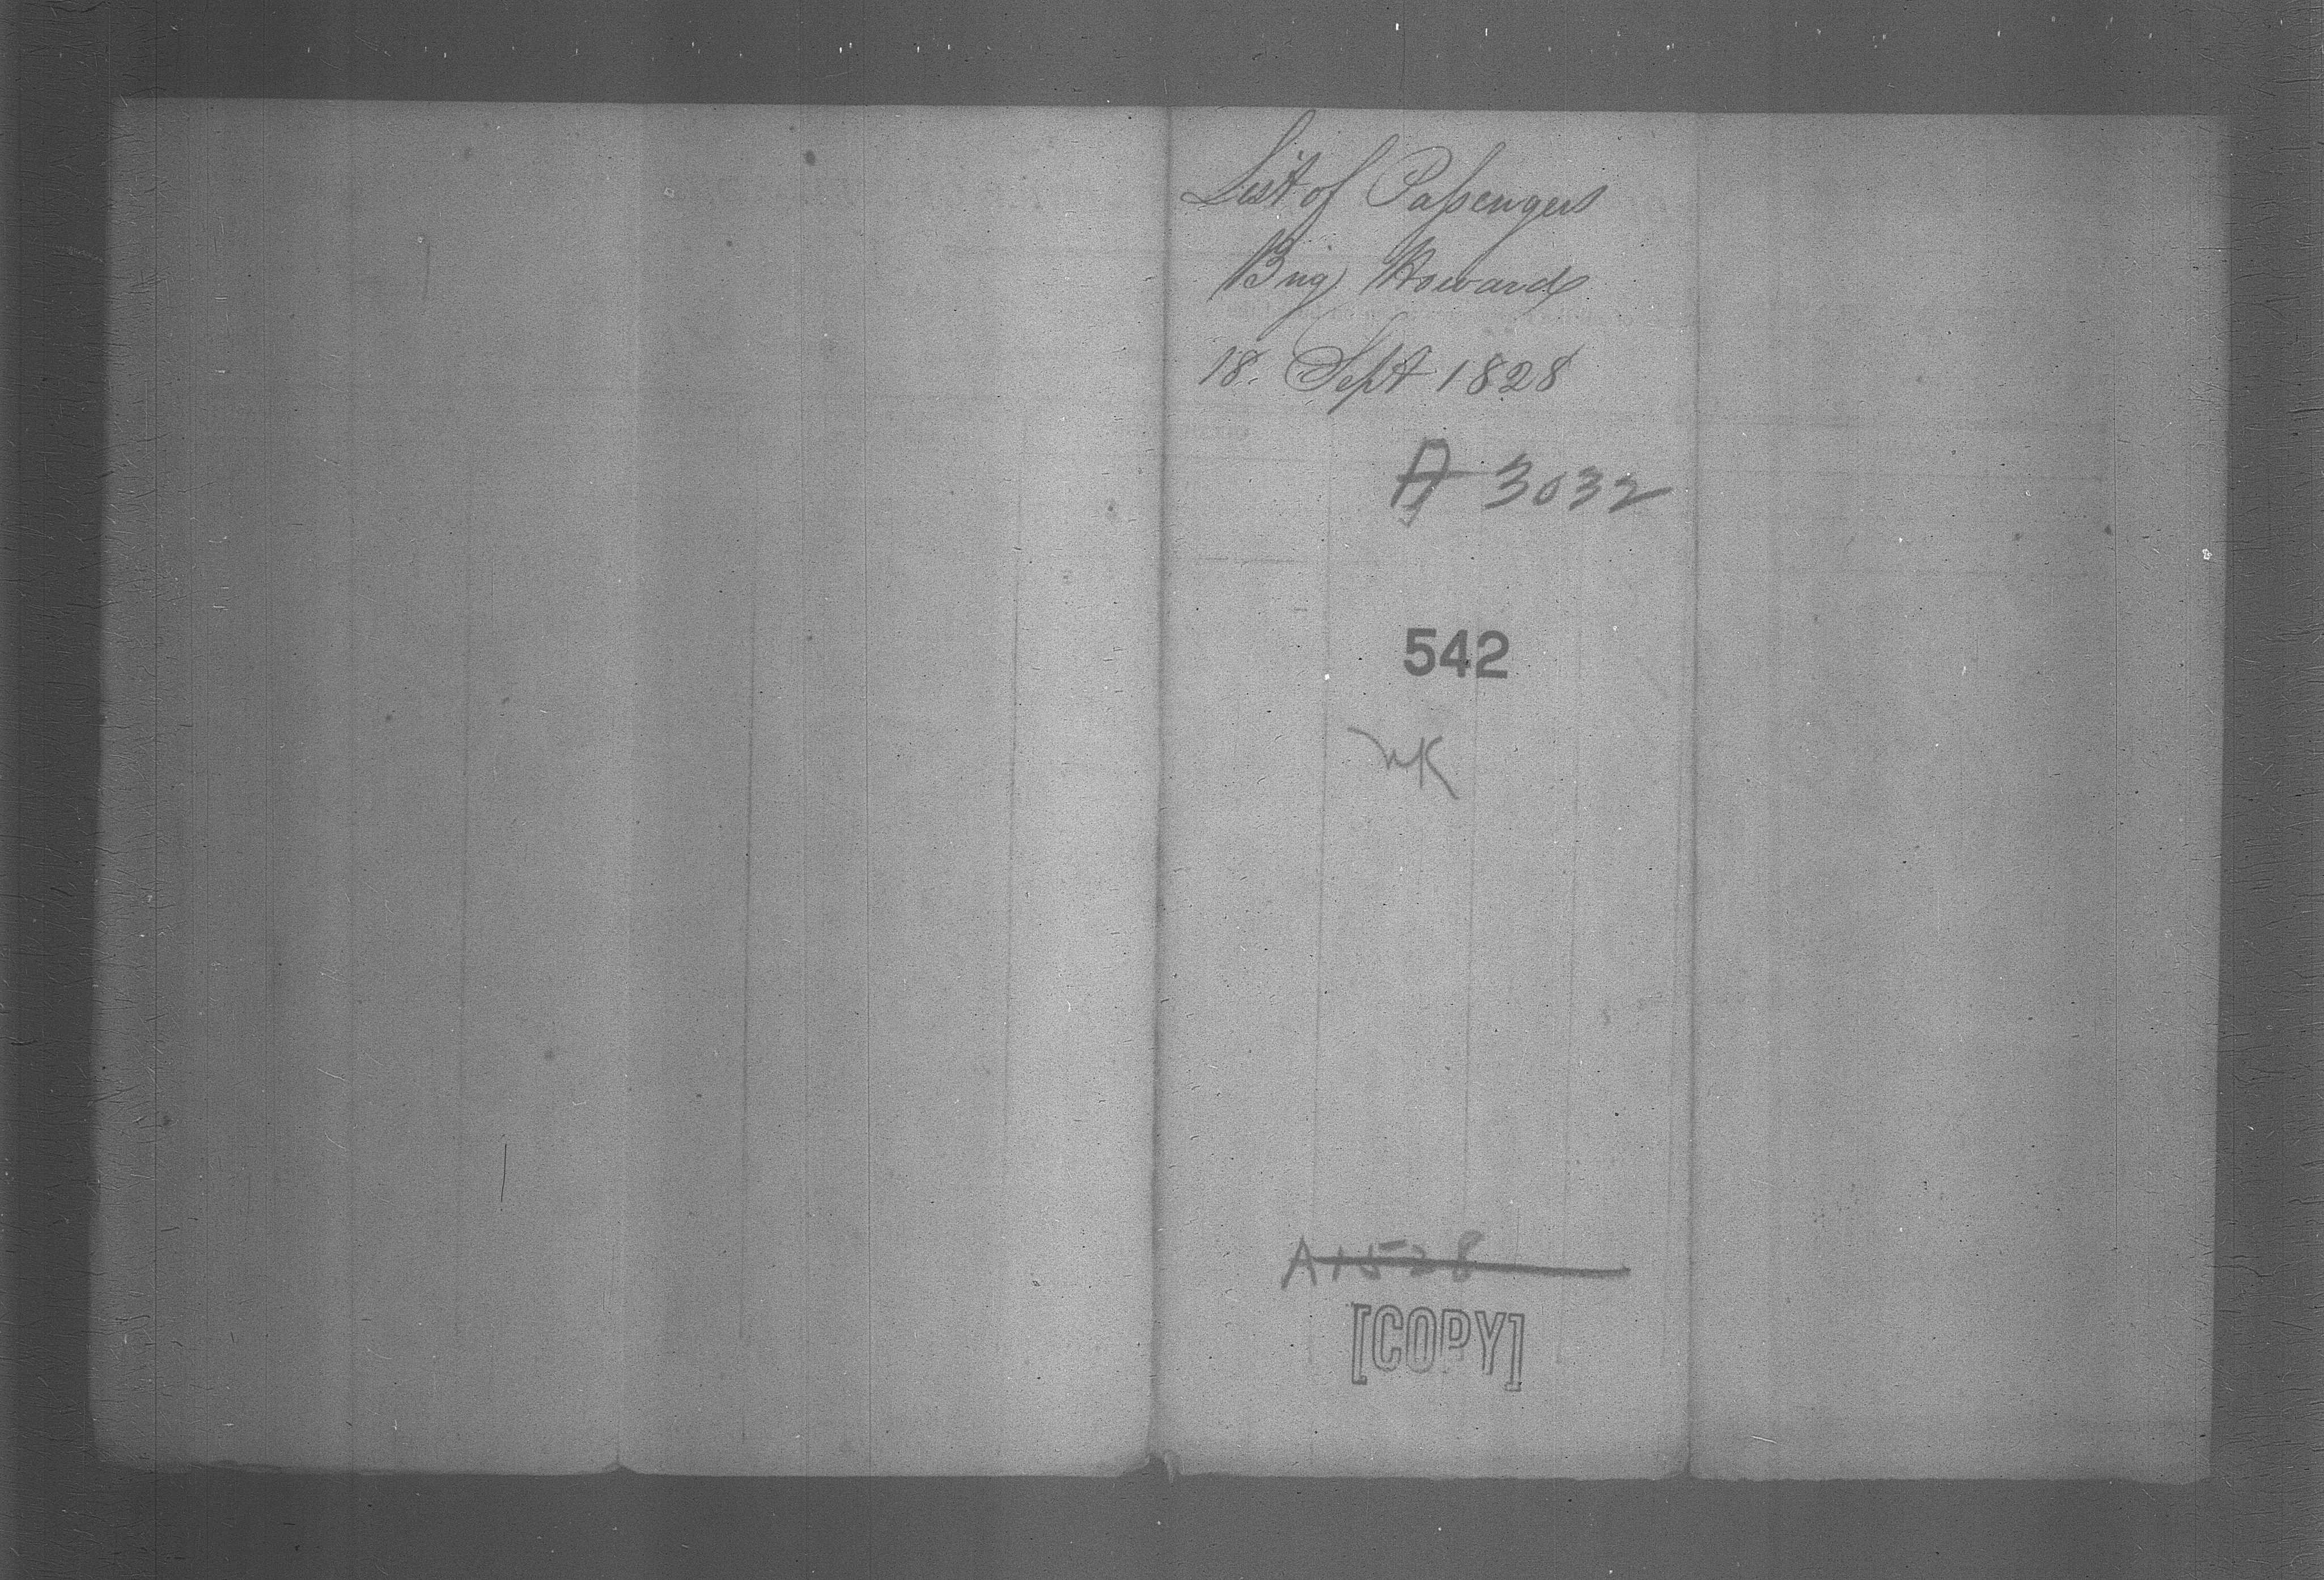 List of Passengers
Brig Howard
18. Sept 1828
A 3032
542
WK
A1528
[COPY]